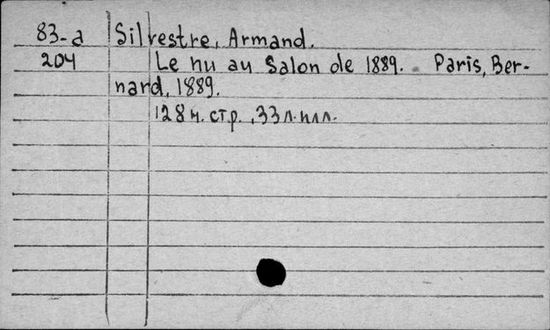 83-a Silvestre, Armand.
204 Le nu au Salon de 1889. Paris, Ber-
nard, 1889.
128 н. стр., 33 л. илл.